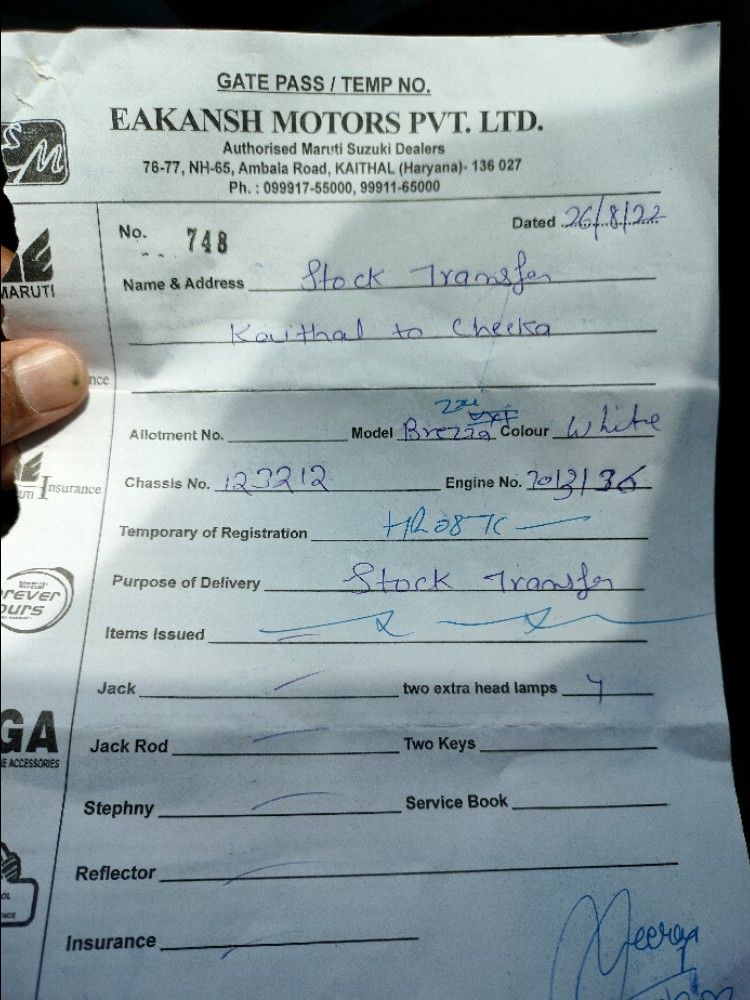 GATE PASS / TEMP NO.
EAKANSH MOTORS PVT. LTD.
Authorised Maruti Suzuki Dealers
76-77, NH-65, Ambala Road, KAITHAL (Haryana)- 136 027
Ph. : 099917-55000, 99911-65000
SM
No. 748 Dated 26/8/22
MARUTI
Name & Address Stock Transfer
Kaithal to Cheeka
nce
Allotment No. Model Brezza Zxi Colour White
Chassis No. 123212 Engine No.
UTI Insurance
Temporary of Registration
Purpose of Delivery Stock Transfer
rever
ours
Items Issued
Jack two extra head lamps
GA
E ACCESSORIES
Jack Rod Two Keys
Stephny Service Book
Reflector
OL
ENCE
Insurance
Neeraj